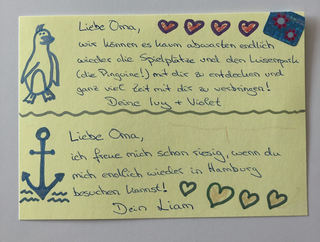 Liebe Oma,
wir können es kaum abwarten endlich
wieder die Spielplätze und den Luisenpark
(die Pinguine!) mit dir zu entdecken und
ganz viel Zeit mit dir zu verbringen!
Deine Ivy + Violet
Liebe Oma,
ich freue mich schon riesig, wenn du
mich endlich wieder in Hamburg
besuchen kannst!
Dein Liam